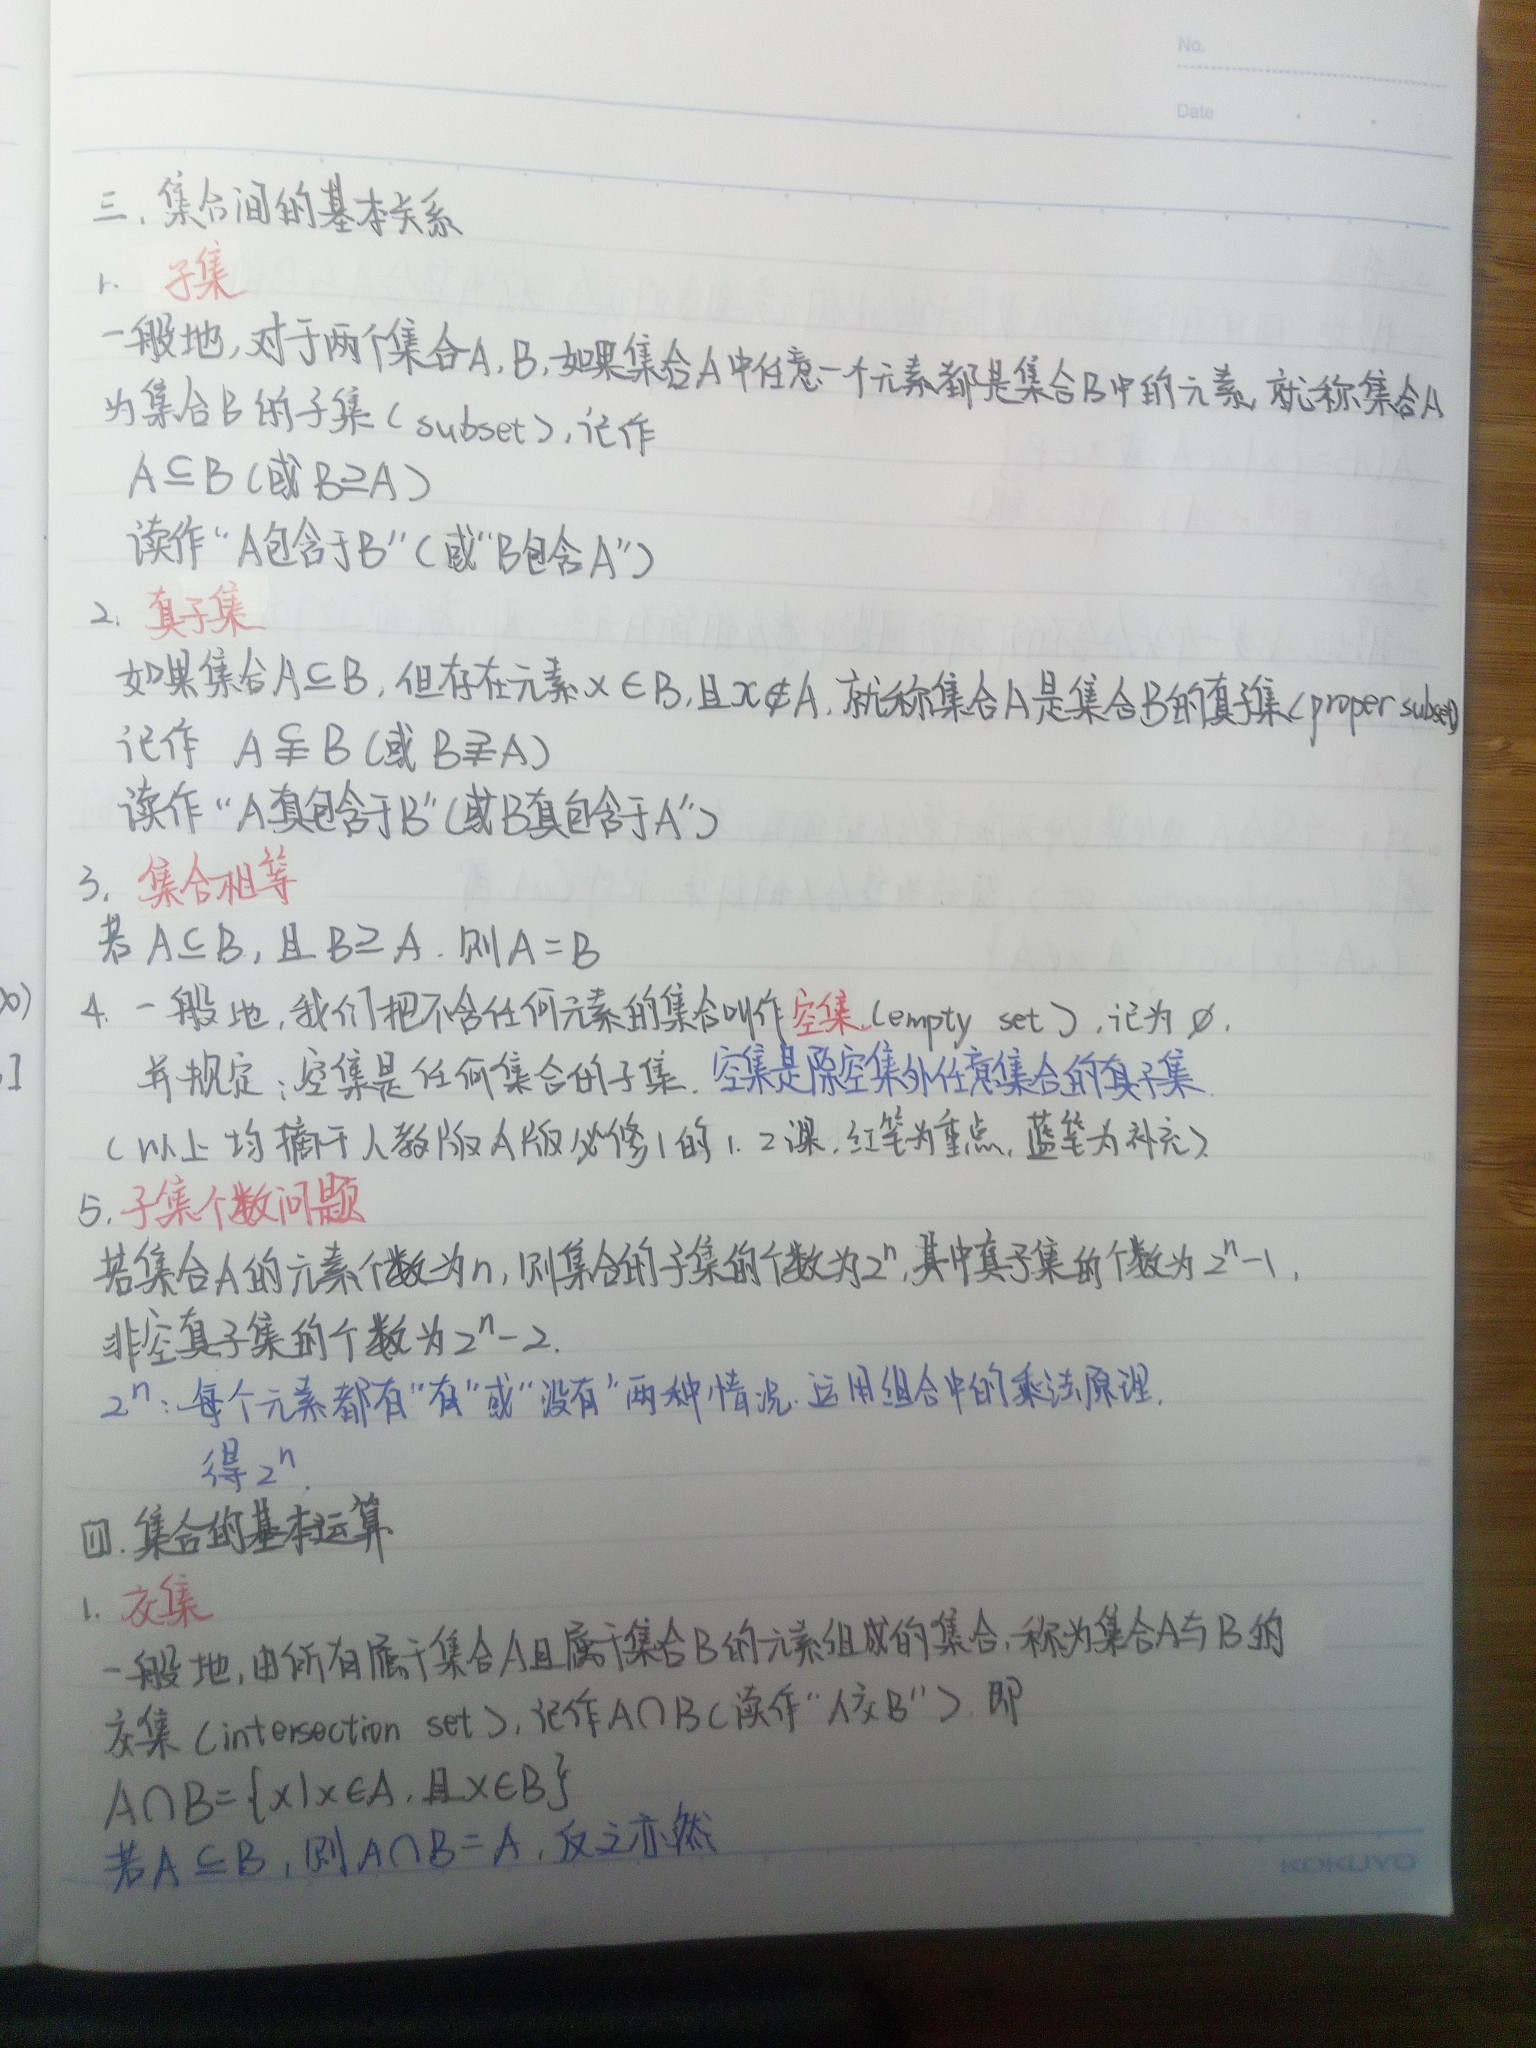 No.
Date
三、集合间的基本关系
1. 子集
一般地,对于两个集合A,B,如果集合A中任意一个元素都是集合B中的元素,就称集合A
为集合B的子集(subset),记作
A⊆B(或B⊇A)
读作“A包含于B”(或“B包含A”)
2. 真子集
如果集合A⊆B,但存在元素x∈B,且x∉A,就称集合A是集合B的真子集(proper subset)
记作 A⫋B(或B⫌A)
读作“A真包含于B”(或B真包含于A”)
3. 集合相等
若A⊆B,且B⊇A.则A=B
4. 一般地,我们把不含任何元素的集合叫作空集(empty set),记为∅.
并规定:空集是任何集合的子集.空集是除空集外任意集合的真子集.
(以上均摘于人教版A版必修1的1.2课.红笔为重点,蓝笔为补充)
5.子集个数问题
若集合A的元素个数为n,则集合的子集的个数为2ⁿ,其中真子集的个数为2ⁿ-1,
非空真子集的个数为2ⁿ-2.
2ⁿ:每个元素都有“有”或“没有”两种情况.运用组合中的乘法原理.
得2ⁿ.
四.集合的基本运算
1. 交集
一般地,由所有属于集合A且属于集合B的元素组成的集合,称为集合A与B的
交集(intersection set),记作A∩B(读作“A交B”).即
A∩B={x|x∈A,且x∈B}
若A⊆B,则A∩B=A,反之亦然
KOKUYO